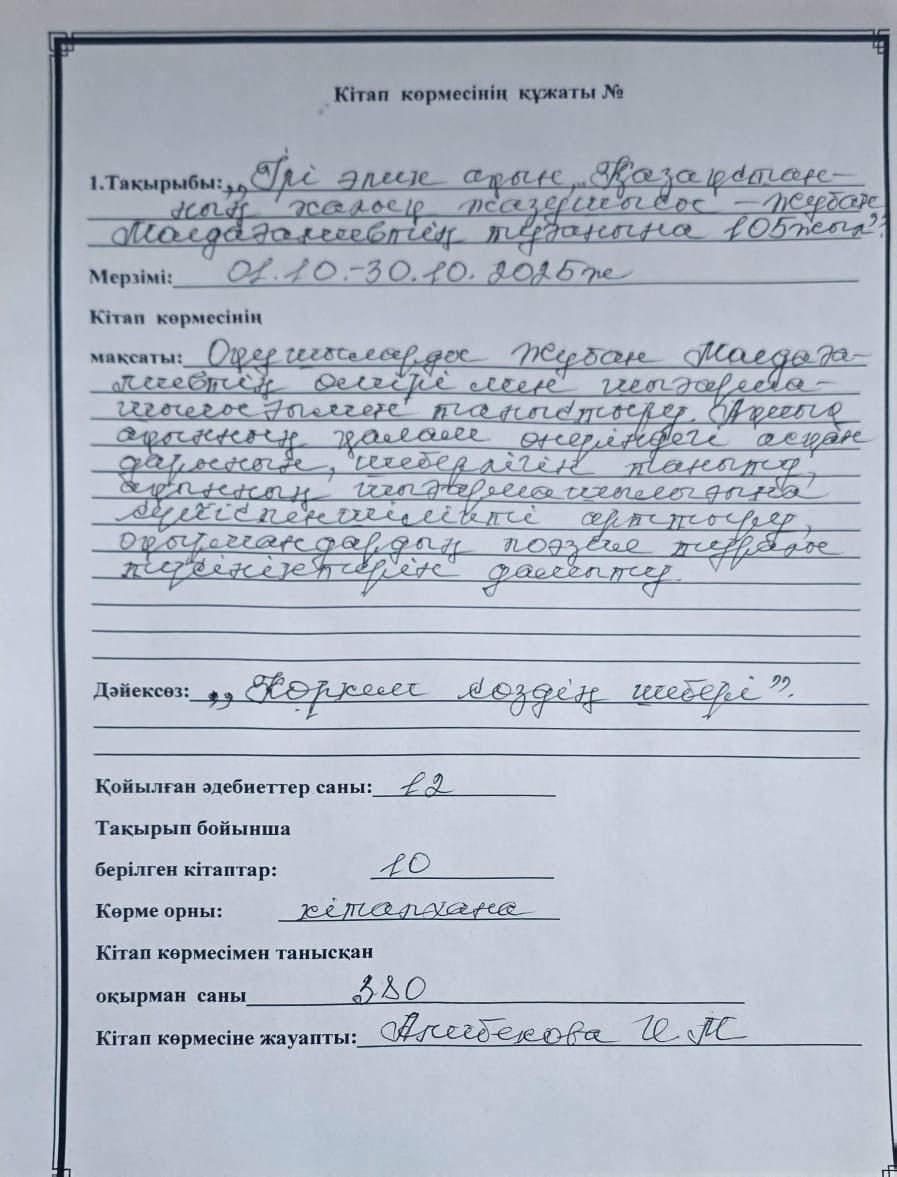 Кітап көрмесінің құжаты №
1.Тақырыбы: „Ірі эпик ақын, Қазақстан-
ның халық жазушысы – Жұбан
Молдағалиевтің туғанына 105 жыл".
Мерзімі: 01.10.-30.10. 2025ж
Кітап көрмесінің
мақсаты: Оқушыларды Жұбан Молдаға-
лиевтің өмірі мен шығарма-
шылығымен таныстыру. Ақиық
ақынның қалам өнеріндегі асқан
дарынын, шеберлігін танытып,
ақынның шығармашылығына
сүйіспеншілікті арттыру,
оқырмандардың поэзия туралы
түсініктерін дамыту.
Дәйексөз: „Көркем сөздің шебері".
Қойылған әдебиеттер саны: 12
Тақырып бойынша
берілген кітаптар: 10
Көрме орны: кітапхана
Кітап көрмесімен танысқан
оқырман саны 380
Кітап көрмесіне жауапты: Анибекова И.М